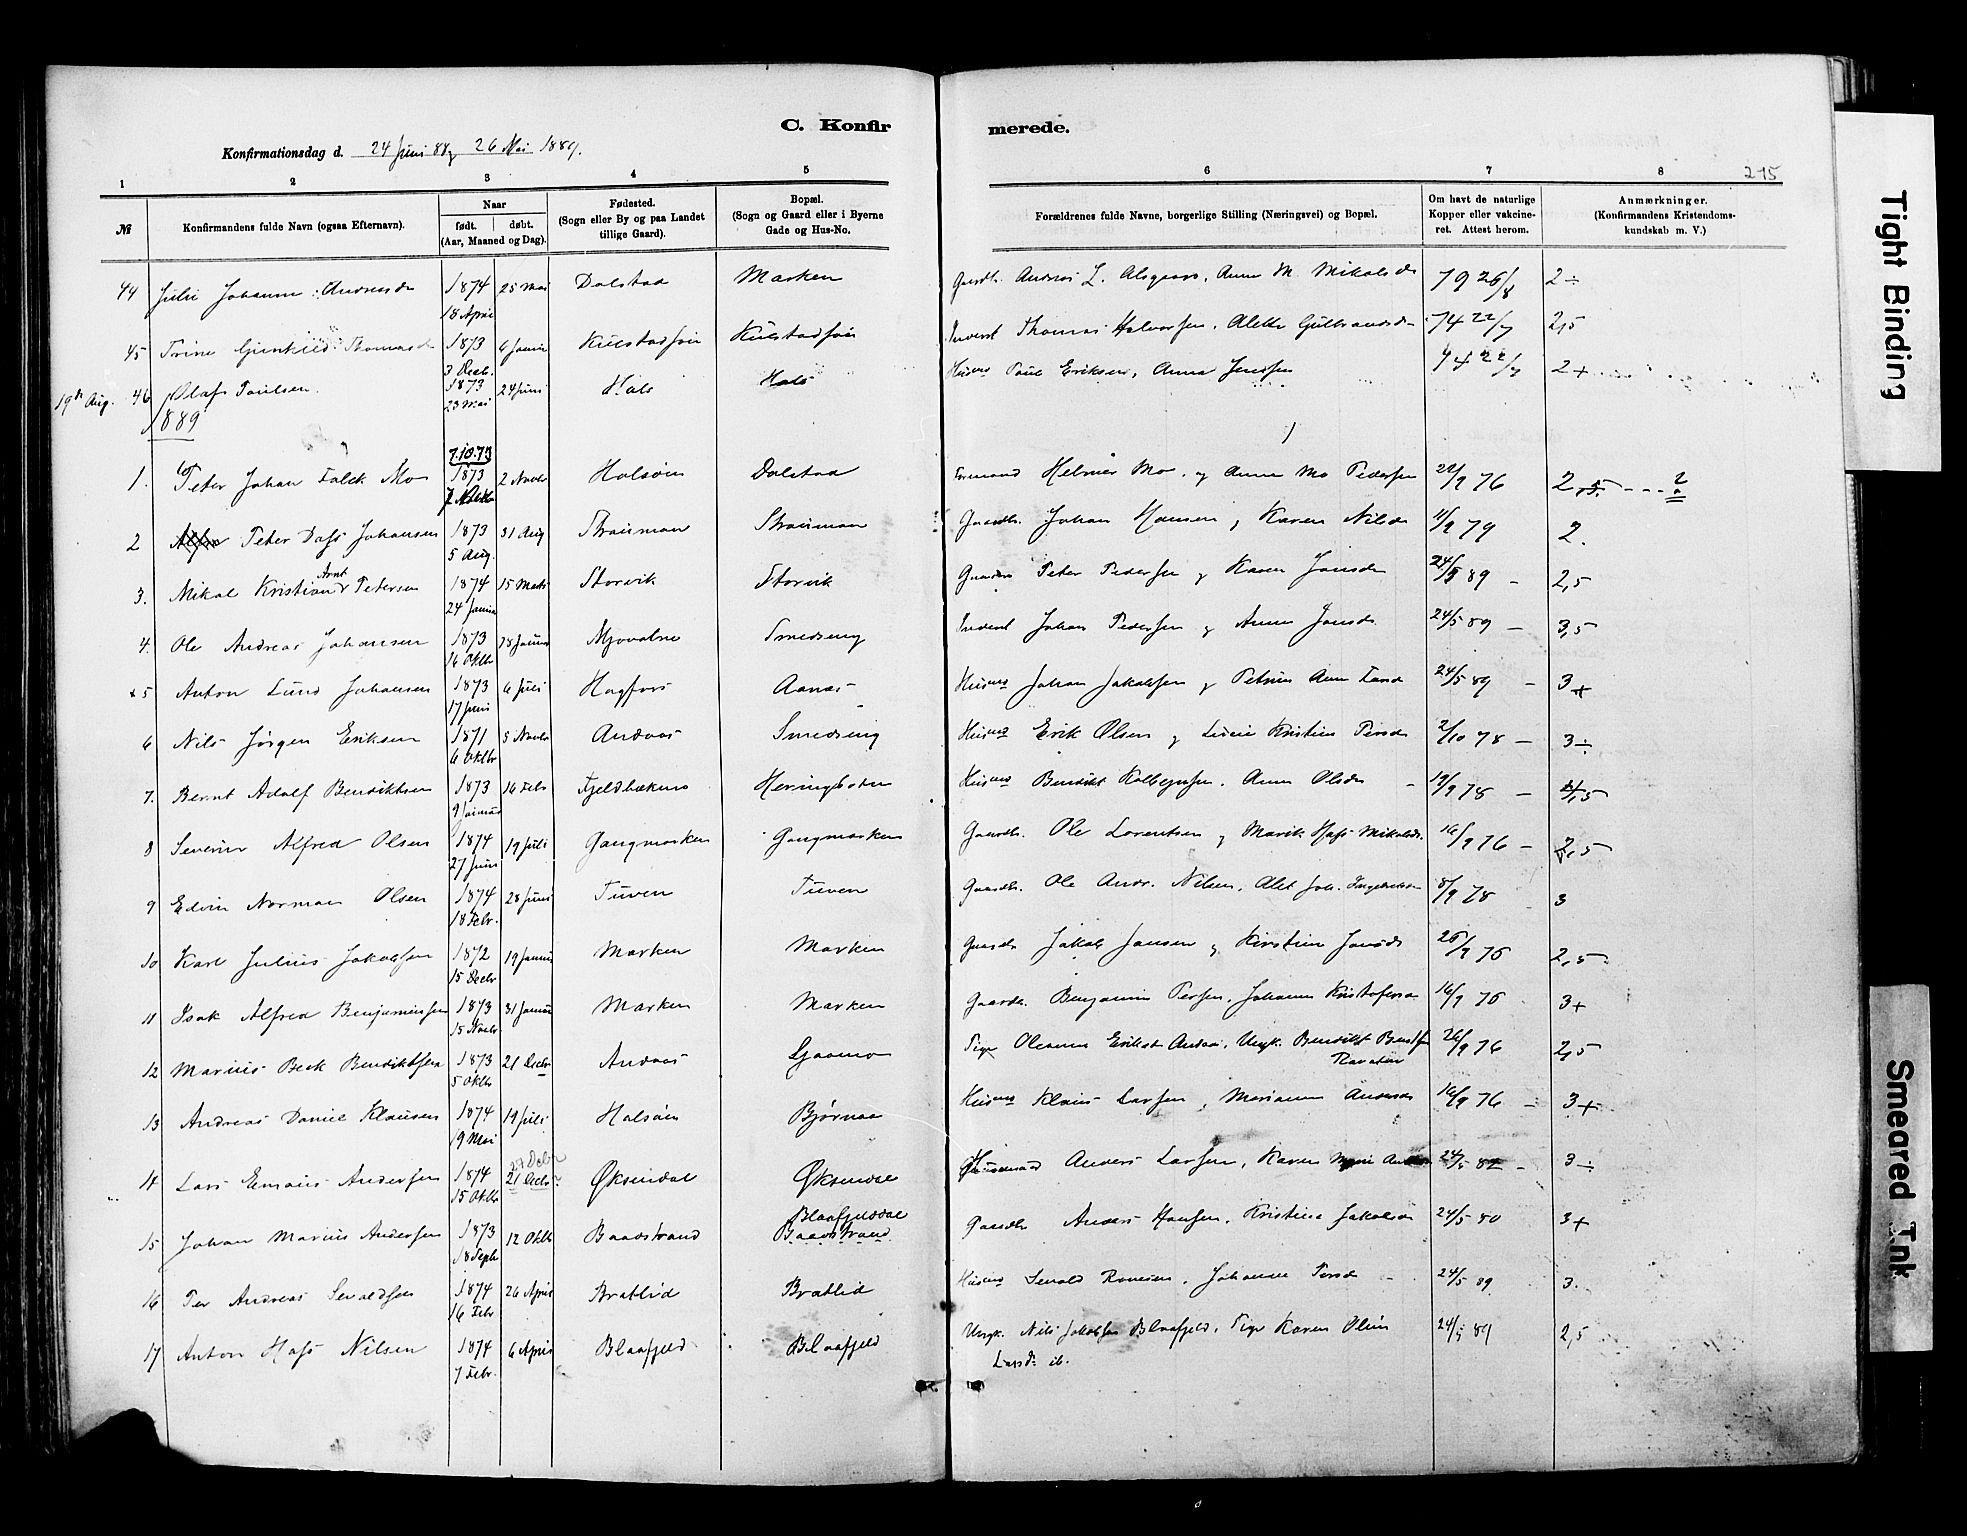 C. Konfirmerede.
Konfirmationsdag d. 24 Juni 88 og 26 Mai 1889.
215
1 2 3 4 5 6 7 8
№
Konfirmandens fulde Navn (ogsaa Efternavn).
Naar
født. døbt.
(Aar, Maaned og Dag).
Fødested.
(Sogn eller By og paa Landet
tillige Gaard).
Bopæl.
(Sogn og Gaard eller i Byerne
Gade og Hus-No.
Forældrenes fulde Navne, borgerlige Stilling (Næringsvei) og Bopæl.
Om havt de naturlige
Kopper eller vakcine-
ret. Attest herom.
Anmærkninger.
(Konfirmandens Kristendoms-
kundskab m. V.)
44 Julie Johanne Andreasd 1874 18 April 25 Mai Dolstad Marken Gaardb. Andreas L. Alsgaard, Anne M. Mikalsd 79 26/8 2÷
45 Trine Thomasd 1873 3 Decb. 6 Kulstadsøen Kulstadsøen Inderst Thomas Halvorsen, Alette Gulbrandsd 74 22/7 2,5
19de Aug. 46 Olaf Paulsen. 1873 23 Mai 24 Juni Hals Hals Husm Paul Eriksen, Anna Jensen 74 22/7 2+
1889
1. Peter Johan Falck Mo 7.10.73 1873 2 Novbr Halsøen Dolstad Formand Helmer Mo og Anna Mo Pedersen 22/9 76 2,5 - - - 2
2 Peter Dass Johansen 1873 5 Aug. 31 Aug Strauman Strauman Gaardb. Johan Hansen og Karen Nilsd 11/9 79 2.
3. Mikal Kristian Arnt Petersen 1874 24 Januar 15 Marts Storvik Storvik Gaardb Peter Pedersen og Karen Jonsd 24/5 89 - 2,5
4. Ole Andreas Johansen 1873 16 Oktbr 28 Smedseng Inderst Johan Pedersen og Anne Jonsd 24/5 89 - 3,5
+5 Anton Lund Johansen 1873 17 Juni 6 Juli Hagfors Aanes Husm Johan Jakobsen og Petrine Ann Lund 24/5 89 - 3+
6 Nils Jørgen Eriksen 1871 6 Oktbr 5 Novbr Andaas Smedseng Husm Erik Olsen og Kristine Persd 2/10 78 - 3÷
7. Bernt Adolf Bendiktsen 1873 9 Januar 16 Febr Fjeldbækmo Heringbotn Husm Bendikt Kolbejnsen, Anne Olsd - 19/9 78 - ,5
8 Severin Alfred Olsen 1874 27 Juni 19 Juli Gangmarken Gangmarken Gaardb. Ole Lorentsen og Marit Hass Mikalsd. 16/9 76 - 2,5
9 Edvin Norman Olsen 1874 18 Febr. 28 Juni Tuven Tuven Gaardb. Ole Andr. Nilsen, Alet Joh. 8/9 78 3
10 Karl Julius Jakobsen 1872 15 Decbr 19 Januar Marken Marken Gaardb Jakob Jansen og Kirstine Jonsd 26/9 76 2,5
11 Isak Alfred Benjaminsen 1873 15 Novbr 31 Januar Marken Marken Gaardb. Benjamin Persen, Johanna Kristofersd 16/9 76 3+
12 Marius Beck Bendiktsen 1873 5 Oktbr 21 Decbr Andaas Ljaamo Pige Oleanna Eriksd Andaas, Ungk. Bendikt 26/9 76 2,5
13 Andreas Daniel Klausen 1874 19 Mai 19 Juli Halsøen Bjørnaa Husm Klaus Larsen, Marianne Andersd 16/9 76 - 3+
14 Lars Emaus Andersen 1874 15 Oktbr 27 Decbr 21 Decbr Øksendal Øksendal Husmand Anders Larsen, Karen Marie 24/5 82 - 3÷
15 Johan Marius Andersen 1873 18 Septb 12 Oktbr Baadstrand Blaafjelddal Baadstrand Gaardb Anders Hansen, Kristine Jakobsd 24/5 80 3+
16 Per Andreas Sevaldsen 1874 16 Febr 26 April Bratlid Bratlid Husm Sevald Johanna Persd - 24/5 89 3.
17 Anton Hass Nilsen 1874 7 Febr. 6 April Blaafjeld Blaafjeld Ungk. Nils Jakobsen Blaafjeld, Pige Karen Oline 24/5 89 2,5
Larsd. ib.
Tight Binding
Smeared Ink